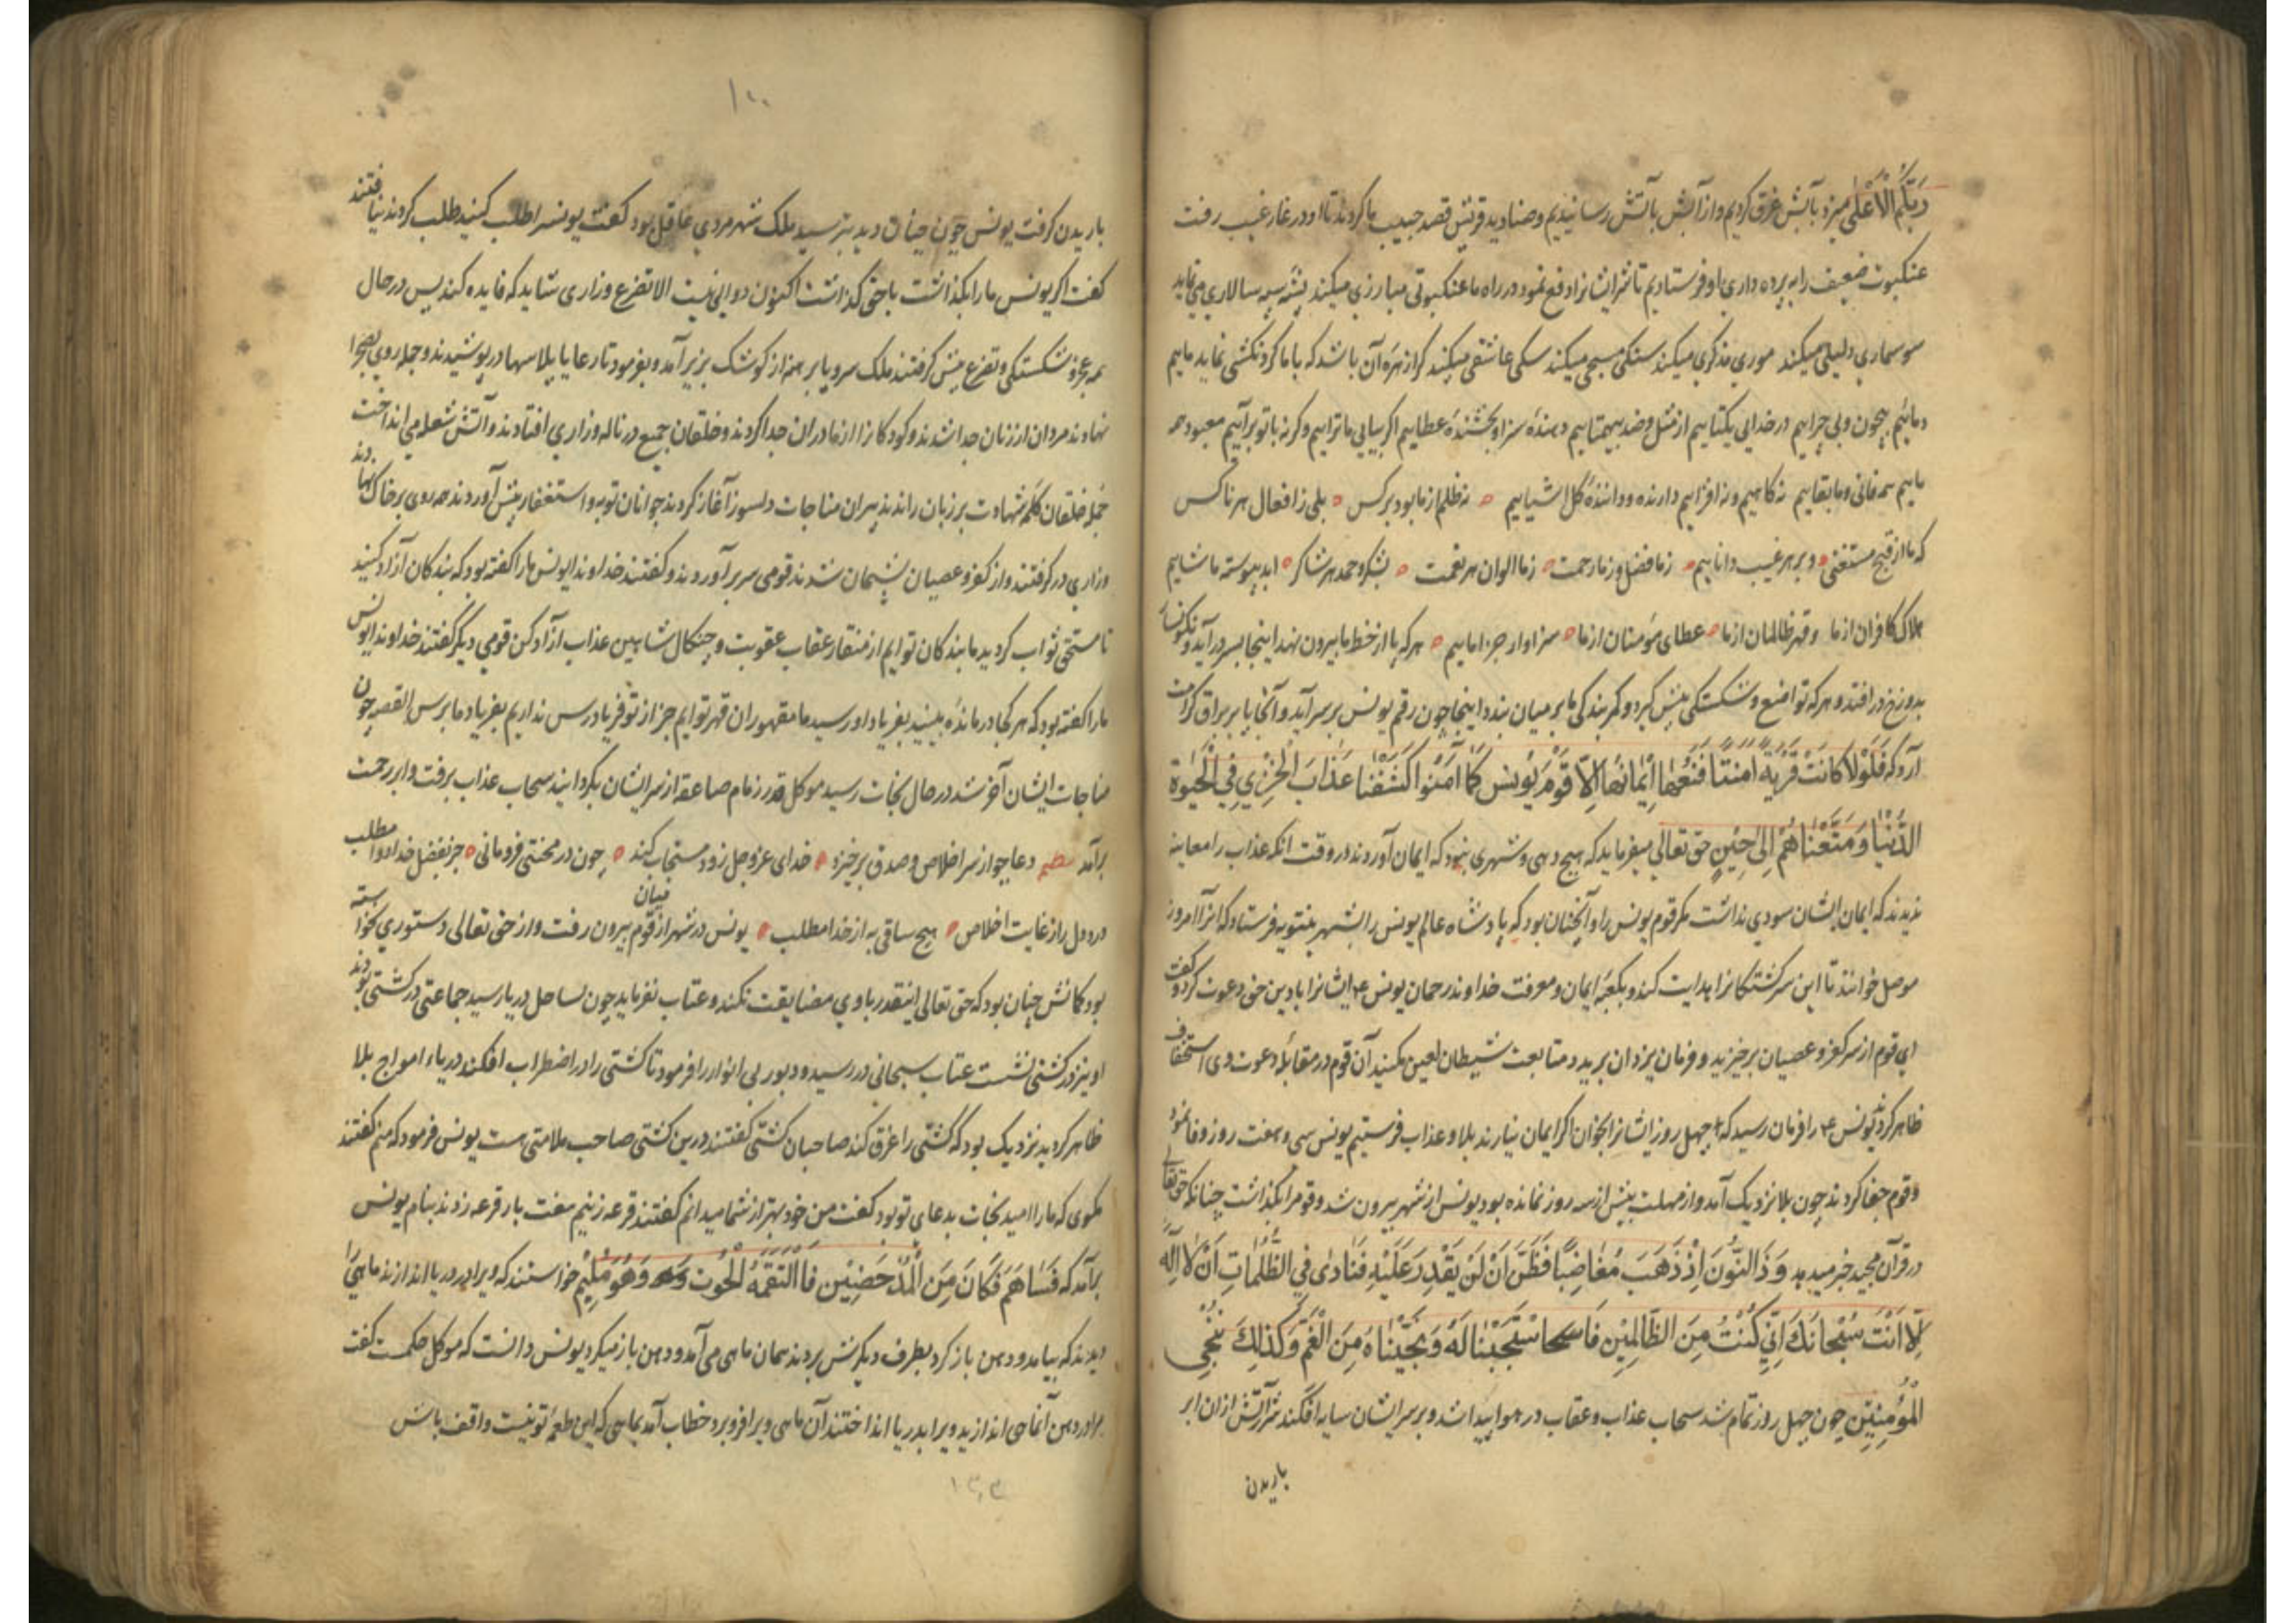 ربکم الاعلی میزد بآبش غرق کردیم و از آبش بآتش رسانیدیم و صنادید قریش قصد حبیب ما کردند تا او در غار غیب رفت
عنکبوت ضعیف را به پرده داری او فرستادیم تا شر ایشانرا دفع نمود در راه ما عنکبوتی مبارزی میکند پشه سپه سالاری می نماید
سوسماری دلیلی میکند موری مذکری میکند سنکی مسبحی میکند سکی عاشقی میکند کرا زهره آن باشد که با ما کردنکشی نماید ماییم
و ماییم بیچون و بی چراییم در خدایی یکتاییم از مثل و ضد بیهمتاییم دهندهٔ سزا و بخشندهٔ عطاییم اکر بیایی ما تراییم وکرنه با تو برآییم معبود همه
ماییم همه فانی و ما بقاییم نه کاهیم و نه افزاییم دارنده و دانندهٔ کل اشیاییم نه ظلم از ما بود بر کس بلی ز افعال هر ناکس
که ما از قبح مستغنی و بر هر غیب داناییم ز ما فضل و ز ما رحمت ز ما الوان هر نعمت بشکر و حمد هر شاکر ابد پیوسته ما شاییم
هلاک کافران از ما و قهر ظالمان از ما عطای مؤمنان از ما سزاوار جزا ماییم هر که پا از خط ما بیرون نهد اینجا بسر درآید و نکونسار
بدوزخ درافتد و هر که تواضع و شکستکی پیش کیرد و کمر بندکی ما بر میان بندد اینجا چون رقم یونس بر سر آید و آنجا پا بر براق کرامت
آرد که فَلَوْلَا كَانَتْ قَرْيَةٌ آمَنَتْ فَنَفَعَهَا إِيمَانُهَا إِلَّا قَوْمَ يُونُسَ لَمَّا آمَنُوا كَشَفْنَا عَذَابَ الْخِزْيِ فِي الْحَيٰوةِ
الدُّنْيَا وَمَتَّعْنَاهُمْ إِلَى حِينٍ حق تعالی میفرماید که هیچ دهی و شهری نبود که ایمان آوردند در وقت آنکه عذاب را معاینه
بدیدند که ایمان ایشان سودی نداشت مکر قوم یونس را و آنچنان بود که پادشاه عالم یونس را بشهر نینویه فرستاد که انرا امروز
موصل خوانند تا این سرکشتکانرا هدایت کند و بکعبهٔ ایمان و معرفت خداوند رحمان یونس ع ایشانرا بادین حق دعوت کرد و کفت
ای قوم از سر کفر و عصیان برخیزید و فرمان یزدان برید و متابعت شیطان لعین مکنید آن قوم در مقابلهٔ دعوت وی استخفاف
ظاهر کردند یونس ع را فرمان رسید که چهل روز ایشانرا بخوان اکر ایمان نیارند بلا و عذاب فرستیم یونس سی و هفت روز وفا نمود
و قوم جفا کردند چون بلا نزدیک آمد و از مهلت بیش از سه روز نمانده بود یونس از شهر بیرون شد و قومرا بکذاشت چنانکه حق تعالی
در قرآن مجید خبر میدهد وَذَا النُّونِ إِذْ ذَهَبَ مُغَاضِبًا فَظَنَّ أَنْ لَنْ يَقْدِرَ عَلَيْهِ فَنَادَى فِي الظُّلُمَاتِ أَنْ لَا إِلَهَ
إِلَّا أَنْتَ سُبْحَانَكَ إِنِّي كُنْتُ مِنَ الظَّالِمِينَ فَاسْتَجَبْنَا لَهُ وَنَجَّيْنَاهُ مِنَ الْغَمِّ وَكَذَلِكَ نُنْجِي
الْمُؤْمِنِينَ چون چهل روز تمام شد سحاب عذاب و عقاب در هوا پیدا شد و بر سر ایشان سایه افکند شرر آتش ازان ابر
باریدن
۱۰۰
باریدن کرفت یونس چون چنان دید بترسید ملک شهر مردی عاقل بود کفت یونسرا طلب کنید طلب کردند نیافتند
کفت اکر یونس ما را بکذاشت با حق کذاشت اکنون دوایی نیست الا تضرع و زاری شاید که فایده کند پس در حال
همه عجز و شکستکی و تضرع پیش کرفتند ملک سر و پا برهنه از کوشک بزیر آمد و بفرمود تا رعایا پلاسها درپوشیدند و جمله روی بصحرا
نهادند مردان از زنان جدا شدند و کودکانرا از مادران جدا کردند و خلقان جمیع در ناله و زاری افتادند و آتش شعله می انداخت
جمله خلقان کلمهٔ شهادت بر زبان راندند پیران مناجات دلسوز آغاز کردند جوانان توبه و استغفار پیش آوردند همه روی بر خاک نهادند
وزاری درکرفتند و از کفر و عصیان پشیمان شدند قومی سر برآوردند و کفتند خداوندا یونس ما را کفته بود که بندکان آزاد کنید
تا مستحق ثواب کردید ما بندکان توایم از منقار عقاب عقوبت و چنکال شاهین عذاب آزاد کن قومی دیکر کفتند خداوندا یونس
ما را کفته بود که هر کجا درماندهٔ ببینید بفریاد او رسید ما مقهوران قهر توایم جز از تو فریادرس نداریم بفریاد ما برس القصه چون
مناجات ایشان آخر شد در حال نجات رسید موکل قدر زمام صاعقه از سر ایشان بکردانید سحاب عذاب برفت و ابر رحمت
برآمد نظم دعا چو از سر اخلاص و صدق برخیزد خدای عز و جل زود مستجاب کند چون در محنتی فرومانی جز بفضل خدا دوا مطلب
درد دل را ز غایت اخلاص هیچ ساقی به از خدا مطلب یونس در شهر از میان قوم بیرون رفت و از حق تعالی دستوری نخواسته
بود کمانش چنان بود که حق تعالی اینقدر با وی مضایقت نکند و عتاب نفرماید چون بساحل دریا رسید جماعتی در کشتی بودند
او نیز در کشتی نشست عتاب سبحانی در رسید و دبور بی انوار را فرمود تا کشتی را در اضطراب افکند دریاء امواج بلا
ظاهر کردید نزدیک بود که کشتی را غرق کند صاحبان کشتی کفتند درین کشتی صاحب ملامتی هست یونس فرمود که منم کفتند
مکوی که ما را امید نجات بدعای تو بود کفت من خود بهتر از شما میدانم کفتند قرعه زنیم هفت بار قرعه زدند بنام یونس
برآمد که فَسَاهَمَ فَكَانَ مِنَ الْمُدْحَضِينَ فَالْتَقَمَهُ الْحُوتُ وَهُوَ مُلِيمٌ خواستند که ویرا در دریا اندازند ماهیی را
دیدند که بیامد و دهن باز کرد بطرف دیکرش بردند همان ماهی می آمد و دهن باز میکرد یونس دانست که موکل حکمت کفت
مرا در دهن آن ماهی اندازید ویرا بدریا انداختند آن ماهی ویرا فرو برد خطاب آمد بماهی که این طعمهٔ تو نیست واقف باش